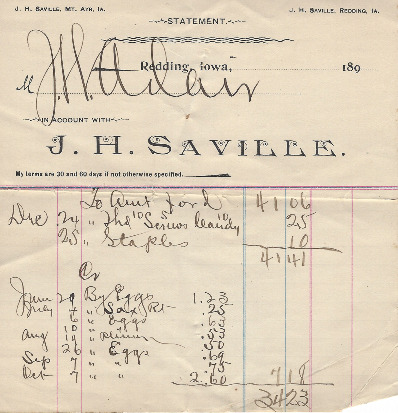 J. H. SAVILLE, MT. AYR, IA. J. H. SAVILLE, REDDING, IA.
STATEMENT.
Redding, Iowa, 189
M J. W. Adair
IN ACCOUNT WITH
J. H. SAVILLE.
My terms are 30 and 60 days if not otherwise specified.
To Amt ford 41 06
Dec 24 " Thg 10 Screws 5 Candy 10 25
25 " Staples 10
41 41
Cr
June 29 By Eggs 1.23
July 7 " Sax Rt .25
6 " Eggs
Aug 10 "
" .50
26 " Eggs .69
Sep 7 " .75
Oct 7 " " 2.60 7 18
34 23